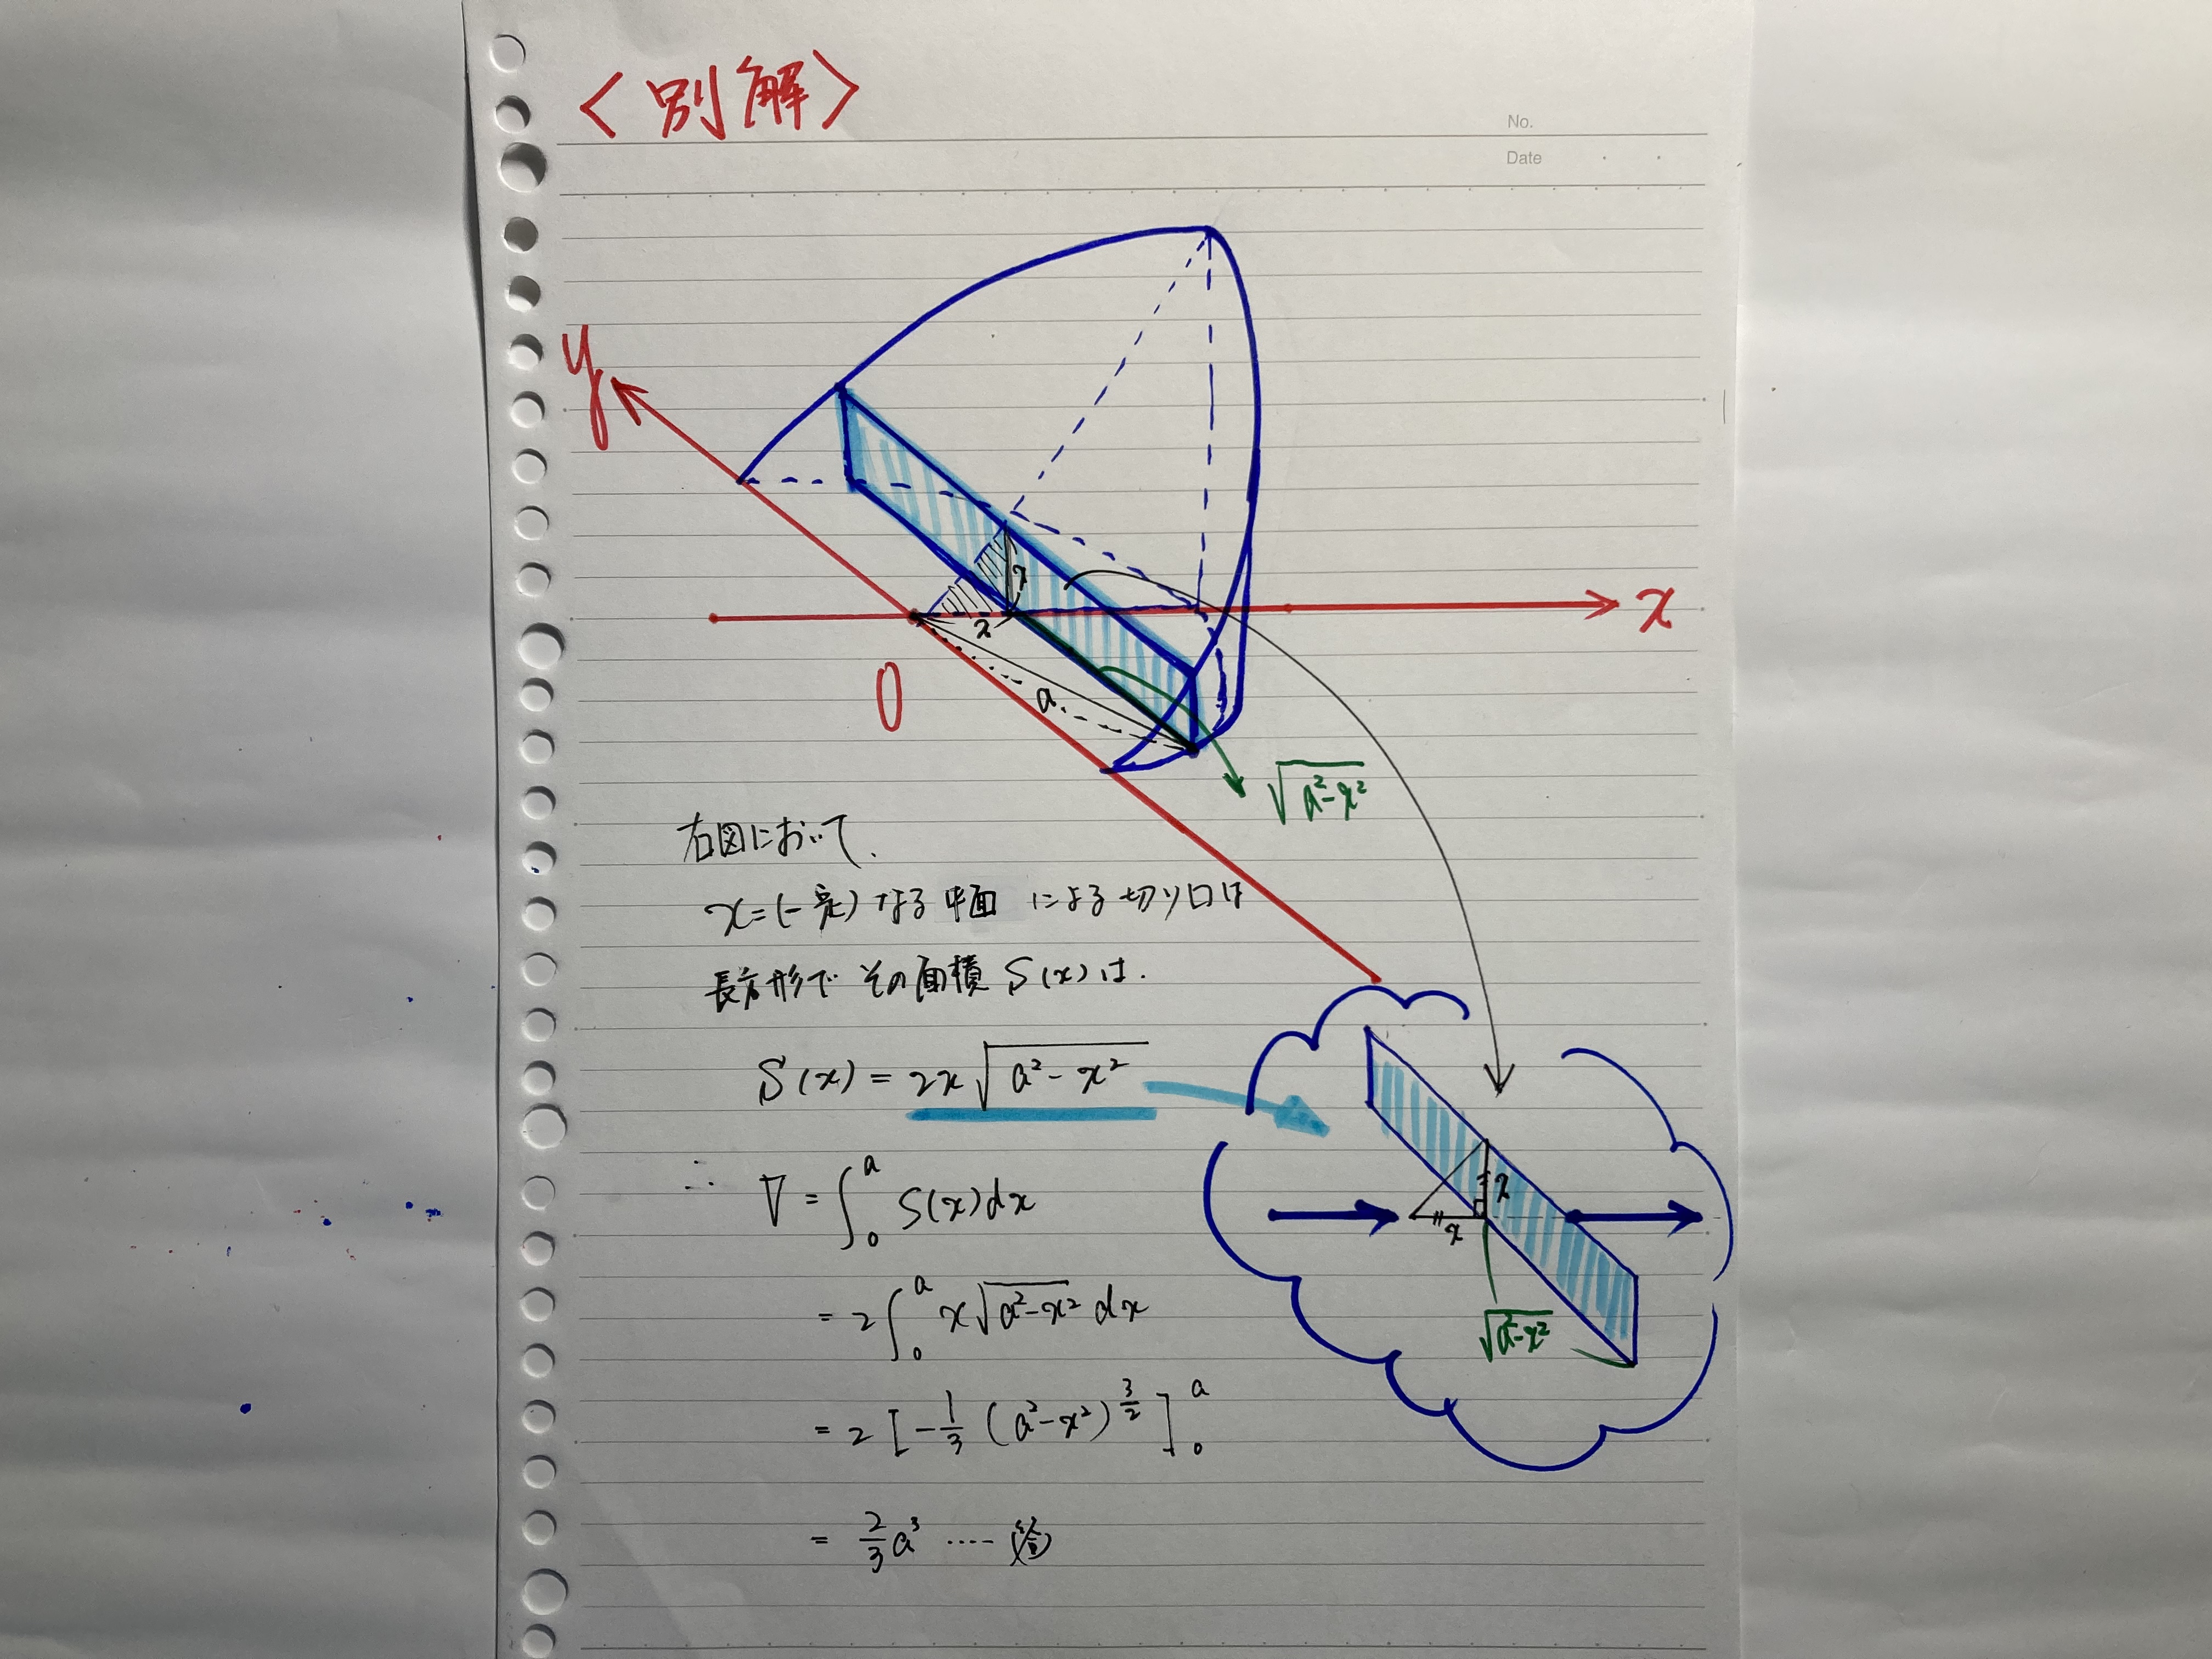 <別解>
No.
Date
y
x
x
x
a
0
√a²-x²
右図において、
x=(一定)なる平面 による切り口は
長方形で その面積 S(x)は.
S(x) = 2x√a²-x²
∴ V = ∫₀ᵃ S(x)dx
= 2∫₀ᵃ x√a²-x² dx
x
x
√a²-x²
= 2[-1/3 (a²-x²)^3/2]₀ᵃ
= 2/3 a³ ····(答)